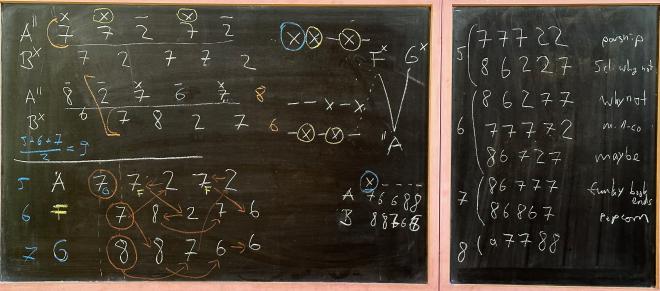 A" 7 7 2 7 2
B× 7 2 7 7 2
A" 8 2 7 6 7 8
B× 6 7 8 2 7 6
5+6+7
2 = 9
5 A 7 7 2 7 2
6 F 7 8 2 7 6
7 G 8 8 7 6 6
F× G×
"A
A 7 6 6 8 8
B 8 8 7 6 8
5 7 7 7 2 2 parsnip
8 6 2 2 7 why not
6 8 6 2 7 7 why not
7 7 7 7 2
8 6 7 2 7 maybe
7 8 6 7 7 7 funky book ends
8 6 8 6 7 popcorn
8 a 7 7 8 8